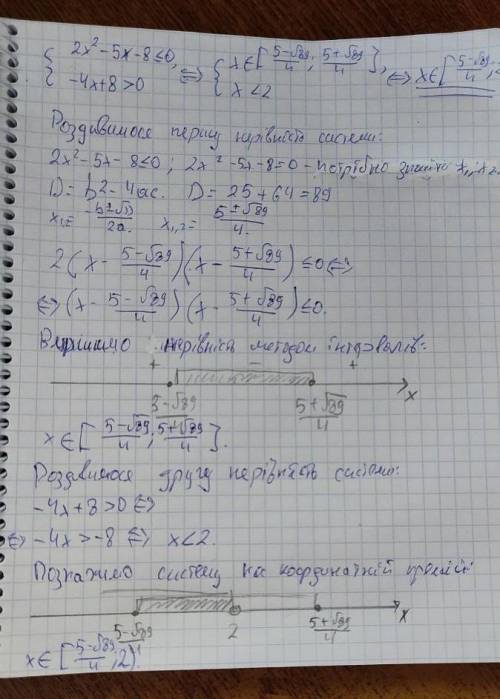 { 2x² - 5x - 8 ≤ 0, -4x + 8 > 0 ⇔ { x ∈ [5-√89/4; 5+√89/4], x < 2 ⇔ x ∈ [5-√89/4;
Роздивимося першу нерівність системи:
2x² - 5x - 8 ≤ 0; 2x² - 5x - 8 = 0 - потрібно знайти x₁, x₂
D = b² - 4ac. D = 25 + 64 = 89
x₁,₂ = 5±√89/4.
2(x - 5-√89/4)(x - 5+√89/4) ≤ 0 ⇔
⇔ (x - 5-√89/4)(x - 5+√89/4) ≤ 0.
Вирішимо нерівність методом інтервалів:
+ - +
5-√89/4 5+√89/4 x
x ∈ [5-√89/4; 5+√89/4].
Роздивимося другу нерівність системи:
-4x + 8 > 0 ⇔
⇔ -4x > -8 ⇔ x < 2.
Позначимо систему на координатній прямій:
5-√89/4 2 5+√89/4 x
x ∈ [5-√89/4; 2).